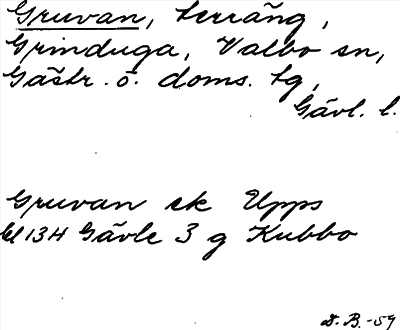 Gruvan, terräng,
Grinduga, Valbo sn,
Gästr. ö. doms. tg,
Gävl. l.
Gruvan ek Upps
bl 13H Gävle 3 g Kubbo
D.B.-59